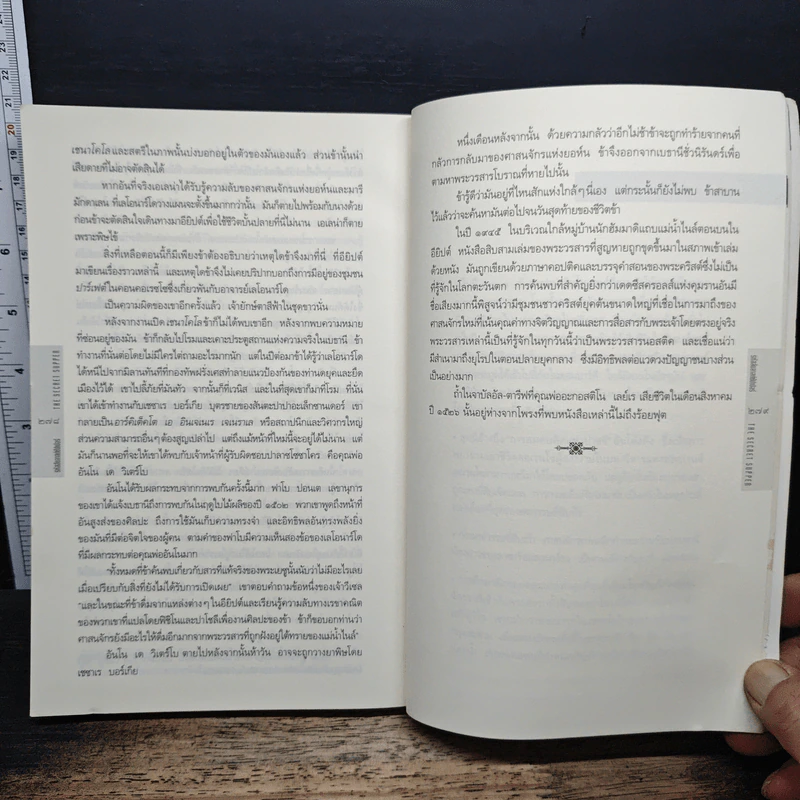 เชนาโคโล และสตรีในภาพนั้นบ่งบอกอยู่ในตัวของมันเองแล้ว ส่วนข้านั้นน่า
เสียดายที่ไม่อาจตัดสินได้
หากอันที่จริงเอเลน่าได้รับรู้ความลับของศาสนจักรแห่งยอห์นและมารี
มักดาเลน ที่เลโอนาร์โดวางแผนจะตั้งขึ้นมากกว่านั้น มันก็ตายไปพร้อมกับนางด้วย
ก่อนข้าจะตัดสินใจเดินทางมาอียิปต์เพื่อใช้ชีวิตบั้นปลายที่นี่ไม่นาน เอเลน่าก็ตาย
เพราะพิษไข้
สิ่งที่เหลือตอนนี้ก็มีเพียงข้าต้องอธิบายว่าเหตุใดข้าจึงมาที่นี่ ที่อียิปต์
มาเขียนเรื่องราวเหล่านี้ และเหตุใดข้าจึงไม่เคยปริปากบอกถึงการมีอยู่ของชุมชน
ปาร์เฟต์ในคอนคอเรซโซซึ่งเกี่ยวพันกับอาจารย์เลโอนาร์โด
เป็นความผิดของเขาอีกครั้งแล้ว เจ้ายักษ์ตาสีฟ้าในชุดขาวนั่น
หลังจากงานเปิด เชนาโคโล ข้าก็ไม่ได้พบเขาอีก หลังจากพบความหมาย
ที่ซ่อนอยู่ของมัน ข้าก็กลับไปโรมและเคาะประตูสถานแห่งความจริงในเบธานี ข้า
ทำงานที่นั่นต่อโดยไม่มีใครใส่ถามอะไรมากนัก แต่ในปีต่อมาข้าได้รู้ว่าเลโอนาร์โด
ได้หนีไปจากมิลานทันทีที่กองทัพฝรั่งเศสทำลายแนวป้องกันของท่านดยุกและยึด
เมืองไว้ได้ เขาไปลี้ภัยที่มันทัว จากนั้นก็ที่เวนิส และในที่สุดเขาก็มาที่โรม ที่นั่น
เขาได้เข้าทำงานกับเซซาเร บอร์เกีย บุตรชายของสันตะปาปาอะเล็กซานเดอร์ เขา
กลายเป็นอาร์คีเต็คโต เอ อินเจเนเร เจเนราเล หรือสถาปนิกและวิศวกรใหญ่
ส่วนความสามารถอื่นๆ ต้องสูญเปล่าไป แต่ถึงแม้หน้าที่ใหม่นี้จะอยู่ได้ไม่นาน แต่
มันก็นานพอที่จะให้เขาได้พบกับเจ้าหน้าที่ผู้รับผิดชอบปาลาซโซซาโคร คือคุณพ่อ
อันโน เด วิเตร์โบ
อันโนได้รับผลกระทบจากการพบกันครั้งนี้มาก ฟาโบ ปอนเต เลขานุการ
ของเขาได้แจ้งเบธานีถึงการพบกันในฤดูใบไม้ผลิของปี ๑๕๐๒ พวกเขาพูดถึงหน้าที่
อันสูงส่งของศิลปะ ถึงการใช้มันเก็บความทรงจำ และอิทธิพลอันทรงพลังยิ่ง
ของมันที่มีต่อจิตใจของผู้คน ตามคำของฟาโบมีความเห็นสองข้อของเลโอนาร์โด
ที่มีผลกระทบต่อคุณพ่ออันโนมาก
“ทั้งหมดที่ข้าค้นพบเกี่ยวกับสารที่แท้จริงของพระเยซูนั้นนับว่าไม่มีอะไรเลย
เมื่อเปรียบกับสิ่งที่ยังไม่ได้รับการเปิดเผย” เขาตอบคำถามข้อหนึ่งของเจ้าวีเซล
“และในขณะที่ข้าดื่มจากแหล่งต่างๆ ในอียิปต์และเรียนรู้ความลับทางเรขาคณิต
ของพวกเขาที่แปลโดยฟิชิโนและปาโชลีเพื่องานศิลปะของข้า ข้าก็ขอบอกท่านว่า
ศาสนจักรยังมีอะไรให้ดื่มอีกมากจากพระวรสารที่ถูกฝังอยู่ใต้ทรายของแม่น้ำไนล์”
อันโน เด วิเตร์โบ ตายไปหลังจากนั้นห้าวัน อาจจะถูกวางยาพิษโดย
เซซาเร บอร์เกีย
๒๗๘
THE SECRET SUPPER
หนึ่งเดือนหลังจากนั้น ด้วยความกลัวว่าอีกไม่ช้าข้าจะถูกทำร้ายจากคนที่
กลัวการกลับมาของศาสนจักรแห่งยอห์น ข้าจึงออกจากเบธานีชั่วนิรันดร์เพื่อ
ตามหาพระวรสารโบราณที่หายไปนั้น
ข้ารู้ดีว่ามันอยู่ที่ไหนสักแห่งใกล้ๆ นี่เอง แต่กระนั้นก็ยังไม่พบ ข้าสาบาน
ไว้แล้วว่าจะค้นหามันต่อไปจนวันสุดท้ายของชีวิตข้า
ในปี ๑๙๔๕ ในบริเวณใกล้หมู่บ้านนักฮัมมาดิแถบแม่น้ำไนล์ตอนบนใน
อียิปต์ หนังสือสิบสามเล่มของพระวรสารที่สูญหายถูกขุดขึ้นมาในสภาพเข้าเล่ม
ด้วยหนัง มันถูกเขียนด้วยภาษาคอปติคและบรรจุคำสอนของพระคริสต์ซึ่งไม่เป็น
ที่รู้จักในโลกตะวันตก การค้นพบที่สำคัญยิ่งกว่าเดดซีสครอลส์แห่งคุมรานอันมี
ชื่อเสียงมากนี้พิสูจน์ว่ามีชุมชนชาวคริสต์ยุคต้นขนาดใหญ่ที่เชื่อในการมาถึงของ
ศาสนจักรใหม่ที่เน้นคุณค่าทางจิตวิญญาณและการสื่อสารกับพระเจ้าโดยตรงอยู่จริง
พระวรสารเหล่านี้เป็นที่รู้จักในทุกวันนี้ว่าเป็นพระวรสารนอสติค และเชื่อแน่ว่า
มีสำเนามาถึงยุโรปในตอนปลายยุคกลาง ซึ่งมีอิทธิพลต่อแวดวงปัญญาชนบางส่วน
เป็นอย่างมาก
ถ้ำในจาบัลอัล-ตารีฟที่คุณพ่ออะกอสติโน เลย์เร เสียชีวิตในเดือนสิงหาคม
ปี ๑๕๒๖ นั้นอยู่ห่างจากโพรงที่พบหนังสือเหล่านี้ไม่ถึงร้อยฟุต
๒๗๙
THE SECRET SUPPER